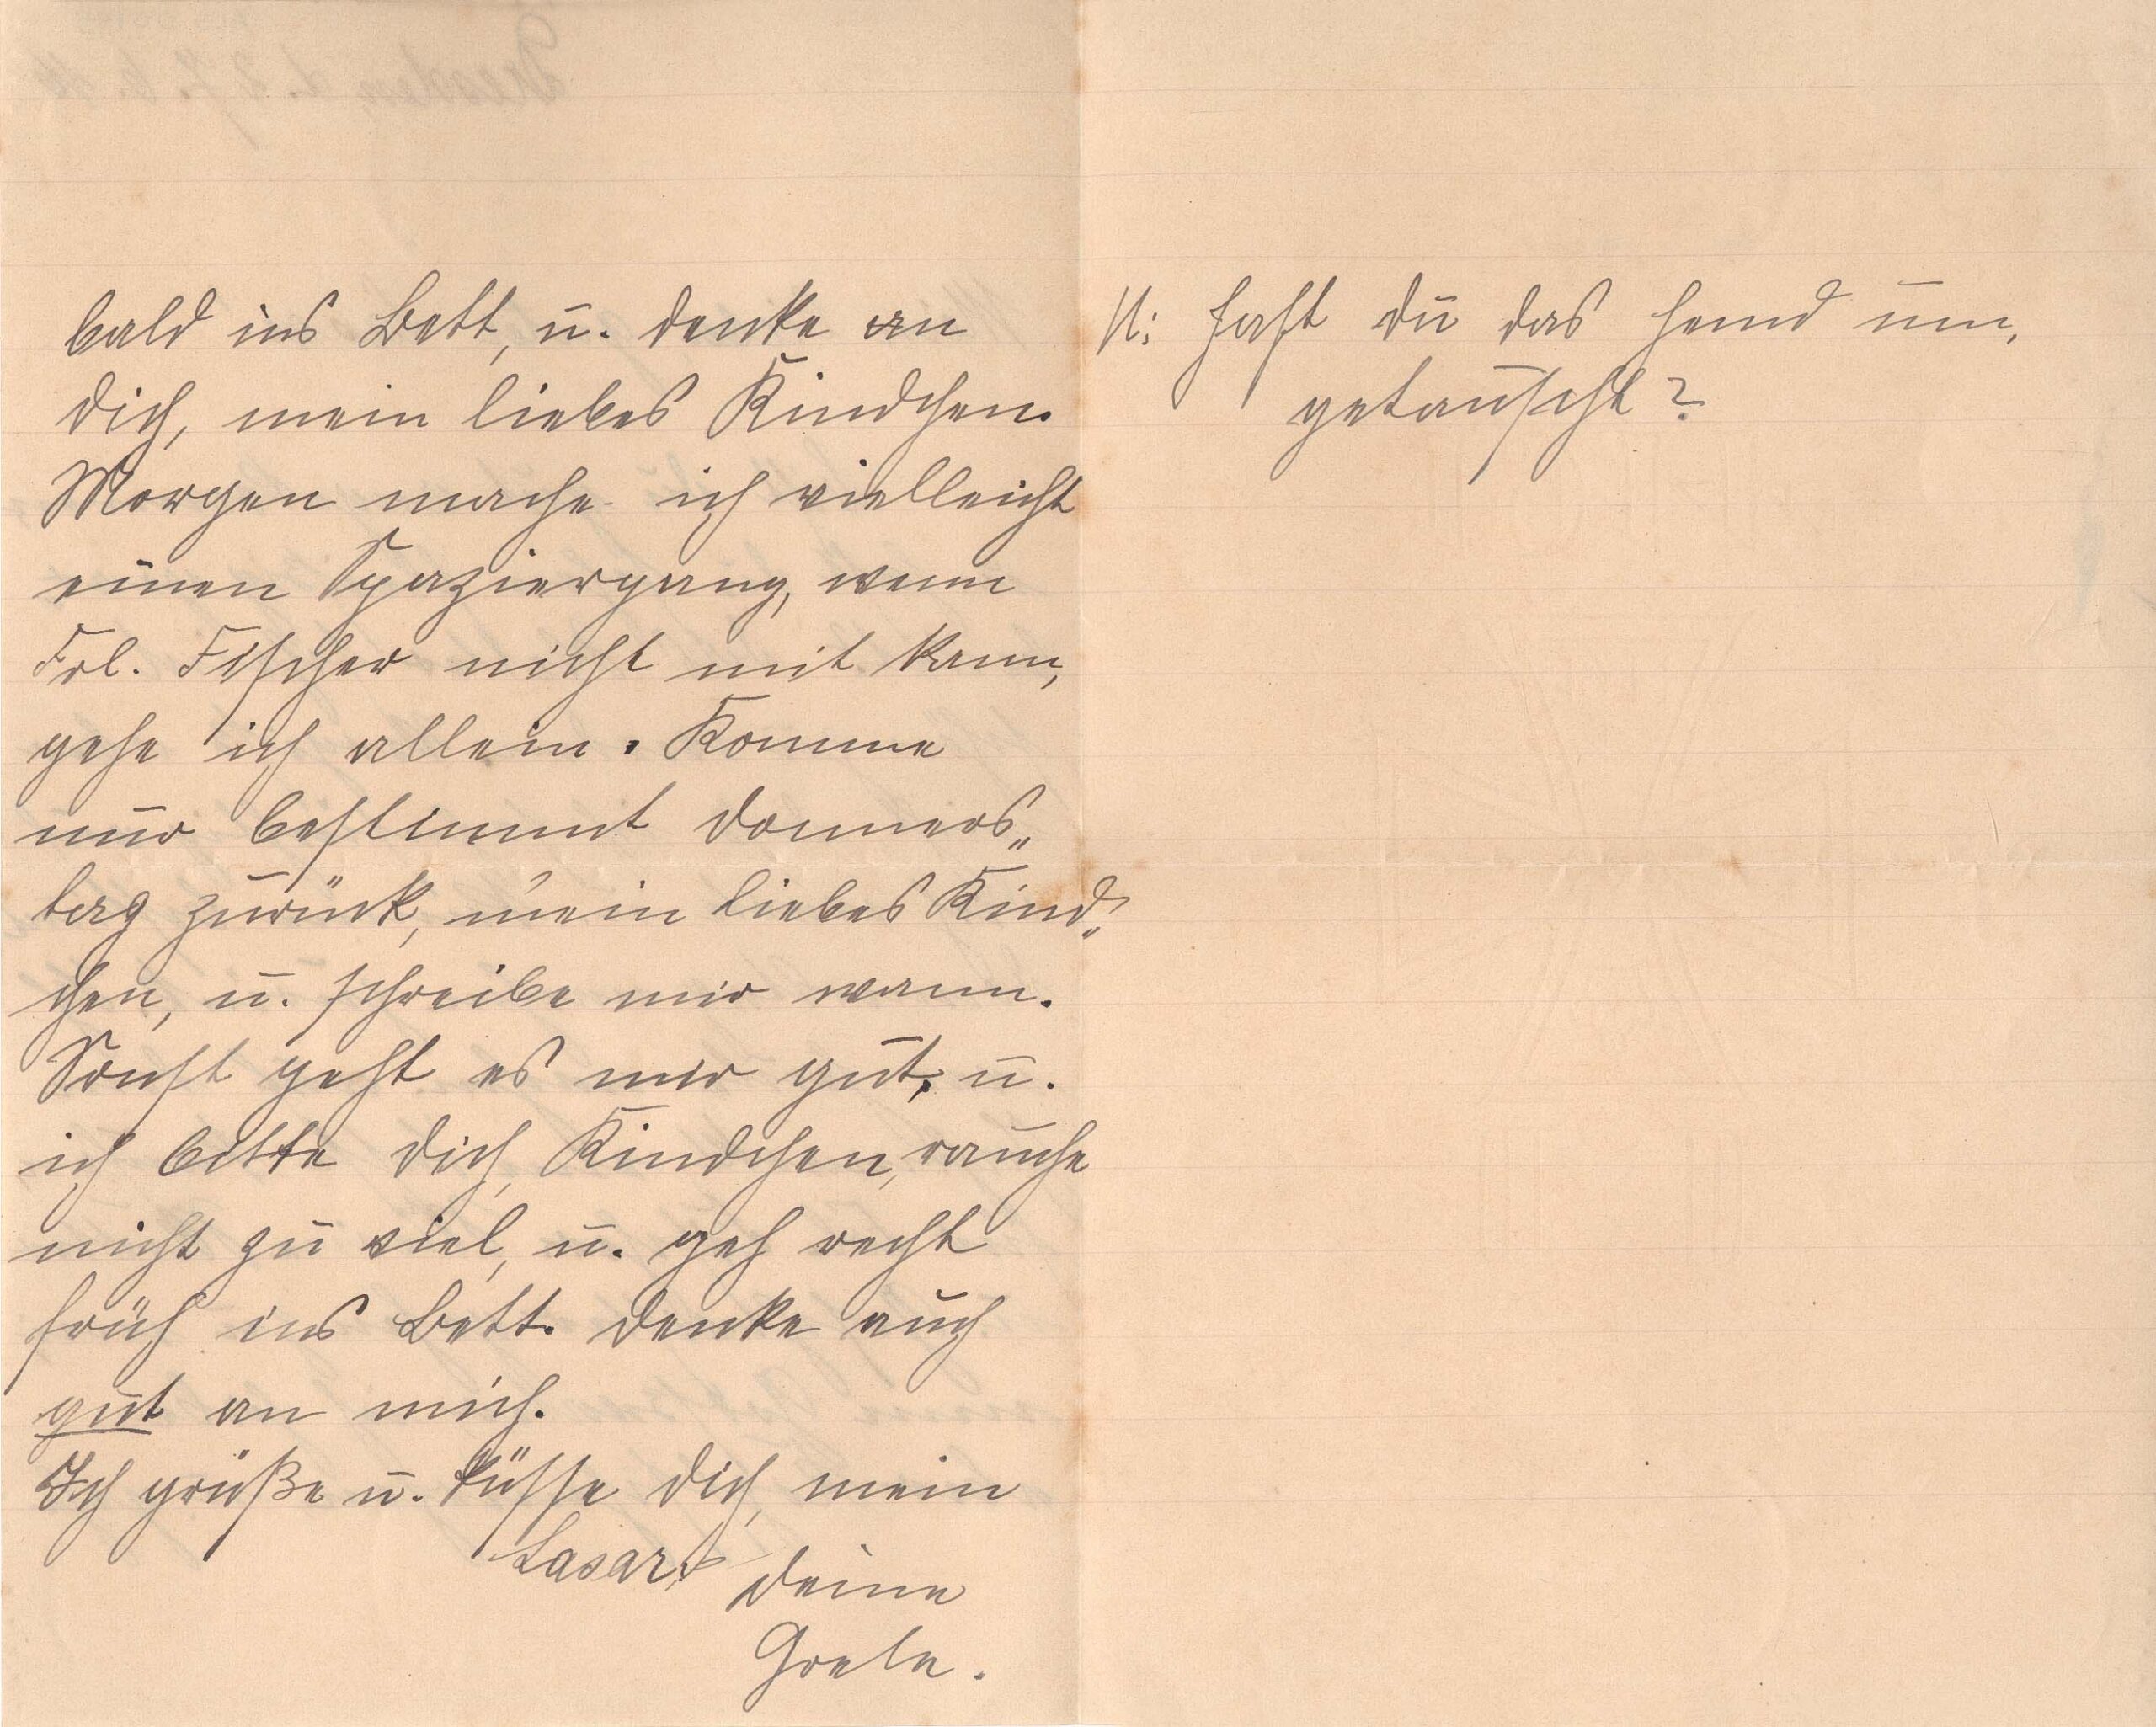 bald ins Bett, u. denke an
Dich, mein liebes Kindchen.
Morgen mache ich vielleicht
einen Spaziergang, wenn
Frl. Fischer nicht mit kann,
gehe ich allein. Komme
nur bestimmt Donners„
tag zurück, mein liebes Kind„
chen, u. schreibe mir wann.
Sonst geht es mir gut, u.
ich bitte Dich, Kindchen, rauche
nicht zu viel, u. geh recht
früh ins Bett. Denke auch
gut an mich.
Ich grüße u. küsse Dich, mein
Lasar, Deine
Grete.
N: Hast Du das Hemd um,
getauscht?